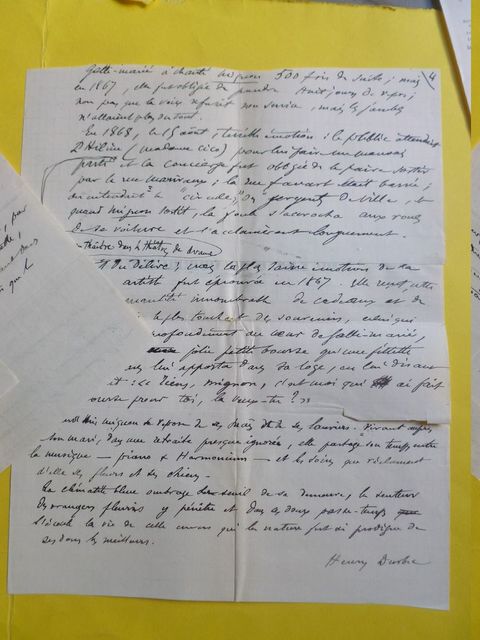 Galli-marié a chanté mignon 500 fois de suite; mais 4
en 1867, elle fut obligée de prendre huit jours de repos;
non pas que la voix refusât son service, mais les jambes
n'allaient plus du tout.
En 1868, le 15 août, terrible émotion: le public attendit
Philine (madame Cico) pour lui faire un mauvais
parti et la concierge fut obligée de la faire sortir
par la rue Marivaux; la rue Favart était barrée;
on entendit "circulez" des sergents de Ville, et
quand mignon sortit, la foule s'accrocha aux roues
de sa voiture et l'acclamèrent longuement.
Théâtre dans
du délire; mais la plus émotion de sa
artiste fut éprouvée en 1867. Elle reçut une
quantité innombrable de cadeaux et de
le plus touchant des souvenirs, celui qui
profondément au cœur de Galli-marié,
jolie petite bourse qu'une fillette
lui apporta dans sa loge, en lui disant
: "Tiens, mignon, c'est moi qui ai fait
bourse pour toi, la veux-tu?"
mignon se repose de ses et de ses lauriers. Vivant auprès
son mari, dans une retraite presque ignorée, elle partage son temps entre
la musique — piano & Harmonium — et les soins que réclament
d'elle ses fleurs et ses chiens.
La clématite bleue ombrage le seuil de sa demeure, la senteur
des orangers fleuris y pénètre et dans ce doux passe-temps
s'écoule la vie de celle envers qui la nature fut si prodigue de
ses dons les meilleurs.
Henry